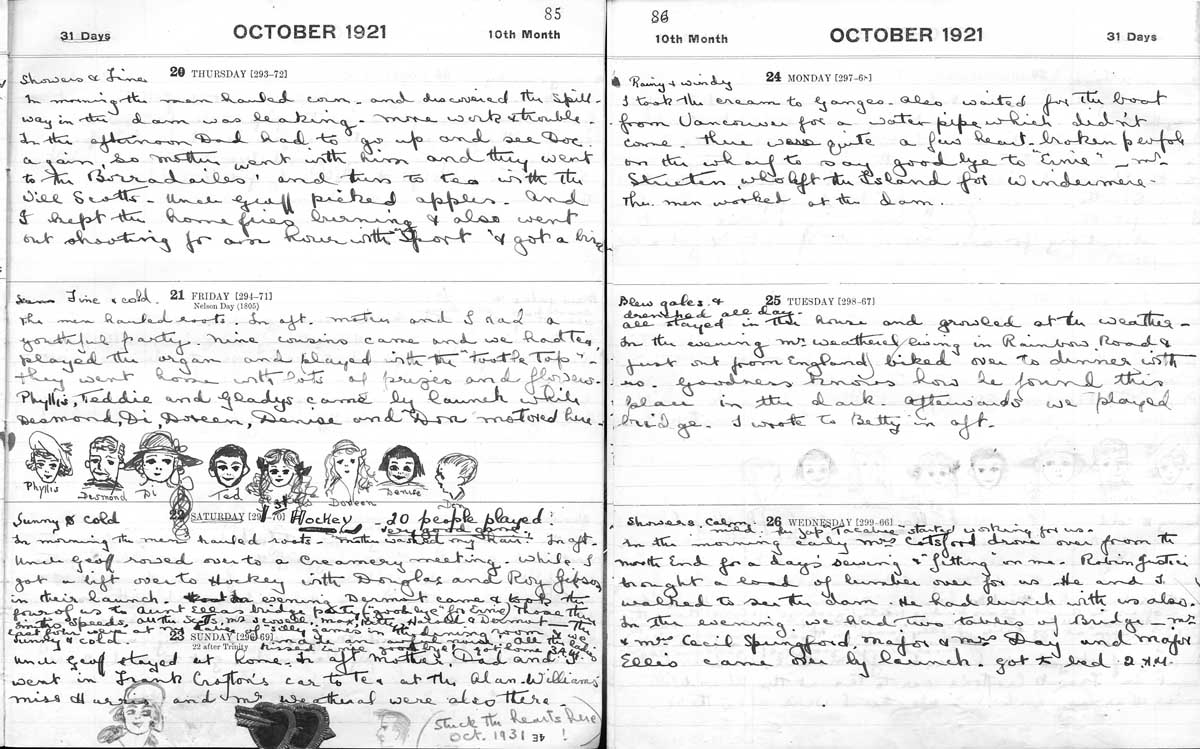 85
31 Days
OCTOBER 1921
10th Month
20 THURSDAY [293-72]
Showers & Fine
In morning the men hauled corn - and discovered the spill-
way in the dam was leaking - more work & trouble.
In the afternoon Dad had to go up and see Doc.
again, so mother went with him and they went
to the Borradailes' and then to tea with the
Will Scotts - Uncle Geoff picked apples. And
I kept the home fires burning & also went
out shooting for an hour with "Sport" & got a bird
21 FRIDAY [294-71]
Nelson Day (1805)
Fine & cold.
The men hauled roots. In aft. mother and I had a
youthful party. Nine cousins came and we had tea,
played the organ and played with the "Tootle Top" -
they went home with lots of prizes and flowers -
Phyllis, Teddie and Gladys came by launch while
Desmond, Di, Doreen, Denise and Don motored here -
Phyllis
Desmond
Di
Ted
Doreen
Denise
Don
Sunny & cold
22 SATURDAY [295-70]
1st Hockey - 20 people played!
very good going
In morning the men hauled roots - mother washed my hair - In aft.
Uncle Geoff rowed over to a Creamery meeting. While I
got a lift over to Hockey with Douglas and Roy Gibson
in their launch. evening Dermot came & took the
four of us to Aunt Ella's bridge party ("goodbye" for Ernie) Those there
Speeds, all the Scotts, Mrs Jewell, Max, Kitty, Harold & Dermot -
silly games in the dining room
kissed Ernie goodbye! got home 3 A.M.
Sunny & cold
23 SUNDAY [296-69]
22 after Trinity
Uncle Geoff stayed at home. In aft Mother, Dad and I
went in Frank Crofton's car to tea at the Alan Williams'
Miss Harris and Mr Weatheral were also there -
(Stuck the hearts here
Oct. 1931 !)
86
10th Month
OCTOBER 1921
31 Days
24 MONDAY [297-68]
Rainy & windy
I took the cream to Ganges - also waited for the boat
from Vancouver for a water pipe which didn't
come. There were quite a few heart-broken people
on the wharf to say goodbye to "Ernie" - Mr
who left the Island for Windermere -
The men worked at the dam.
25 TUESDAY [298-67]
Blew gales &
drenched all day -
all stayed in the house and growled at the weather -
In the evening Mr Weatheral (living in Rainbow Road &
just out from England) biked over to dinner with
us. Goodness knows how he found this
place in the dark. Afterwards we played
bridge. I wrote to Betty in aft.
26 WEDNESDAY [299-66]
Showers, Calm
the Jap started working for us.
In the morning early Mrs Cotsford drove over from the
North End for a days sewing & "fitting" on me. Robin Justice
brought a load of lumber over for us - He and I
walked to see the dam. He had lunch with us also.
In the evening we had two tables of Bridge - Mr
& Mrs Cecil Springford, Major & Mrs Day and Major
Ellis came over by launch. got to bed 2 A.M.